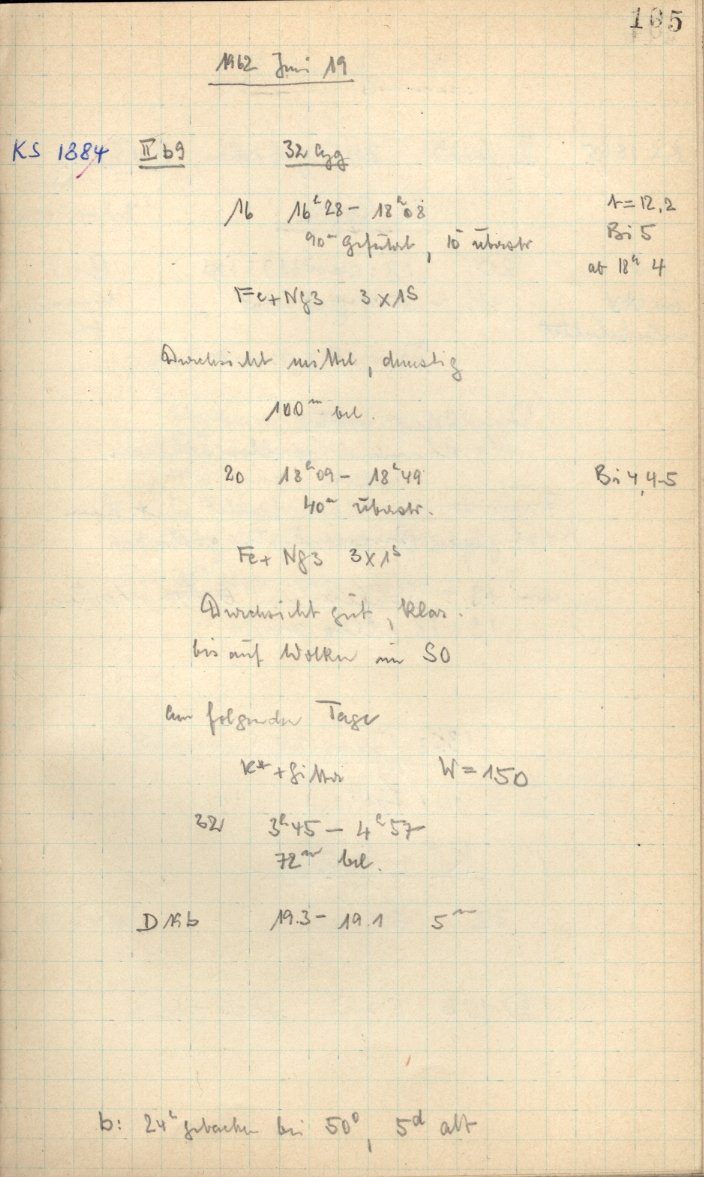 105
1962 Juni 19
KS 1884 II b9 32 Cyg
16 16h28 – 18h08 t=12,2
90m geführt, 10 überstr Bi 5
ab 18h 4
Fe+Ng3 3x1s
Durchsicht mittel, dunstig
100m bel.
20 18h09 – 18h49 Bi 4, 4-5
40m überstr.
Fe+ Ng3 3x1s
Durchsicht gut, klar.
bis auf Wolken im SO
am folgenden Tage
K* + Gitter W=150
32 3h45 – 4h57
72m bel.
D19b 19.3 – 19.1 5m
b: 24h gebacken bei 50°, 5d alt